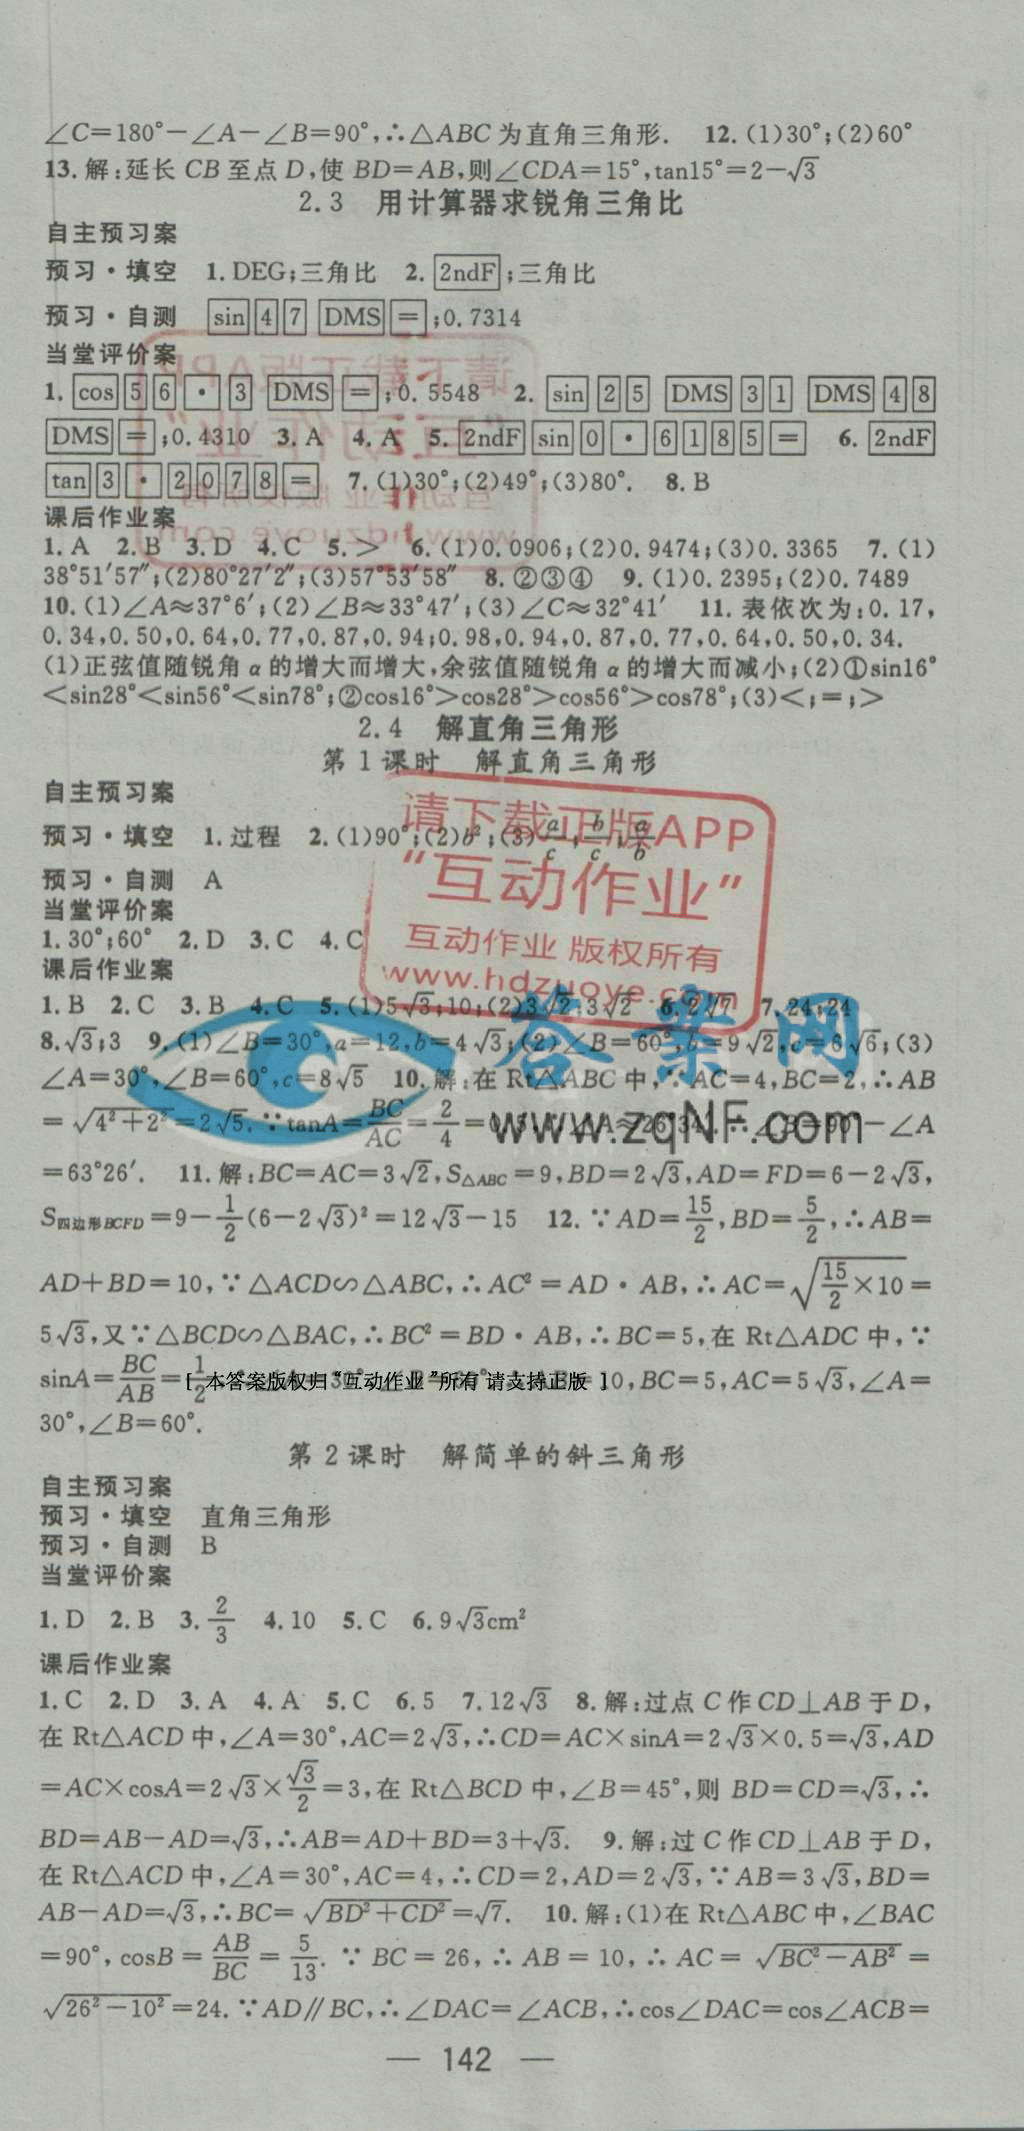 ∠C=180°-∠A-∠B=90°,∴△ABC为直角三角形. 12.(1)30°;(2)60°
13.解:延长CB至点D,使BD=AB,则∠CDA=15°,tan15°=2-√3
2.3 用计算器求锐角三角比
自主预习案
预习·填空 1.DEG;三角比 2.2ndF;三角比
预习·自测 sin 4 7 DMS =;0.7314
当堂评价案
1.cos 5 6 · 3 DMS =;0.5548 2.sin 2 5 DMS 3 1 DMS 4 8
DMS =;0.4310 3.A 4.A 5.2ndF sin 0 · 6 1 8 5 = 6.2ndF
tan 3 · 2 0 7 8 = 7.(1)30°;(2)49°;(3)80°. 8.B
课后作业案
1.A 2.B 3.D 4.C 5.> 6.(1)0.0906;(2)0.9474;(3)0.3365 7.(1)
38°51′57″;(2)80°27′2″;(3)57°53′58″ 8.②③④ 9.(1)0.2395;(2)0.7489
10.(1)∠A≈37°6′;(2)∠B≈33°47′;(3)∠C≈32°41′ 11.表依次为:0.17,
0.34,0.50,0.64,0.77,0.87,0.94;0.98,0.94,0.87,0.77,0.64,0.50,0.34.
(1)正弦值随锐角α的增大而增大,余弦值随锐角α的增大而减小;(2)①sin16°
<sin28°<sin56°<sin78°;②cos16°>cos28°>cos56°>cos78°;(3)<;=;>
2.4 解直角三角形
第1课时 解直角三角形
自主预习案
预习·填空 1.过程 2.(1)90°;(2)b²;(3)a/c;b/c;a/b
预习·自测 A
当堂评价案
1.30°;60° 2.D 3.C 4.C
课后作业案
1.B 2.C 3.B 4.C 5.(1)5√3;10;(2)3√2;3√2 6.2√7 7.24;24
8.√3;3 9.(1)∠B=30°,a=12,b=4√3;(2)∠B=60°,b=9√2,c=6√6;(3)
∠A=30°,∠B=60°,c=8√5 10.解:在Rt△ABC中,∵AC=4,BC=2,∴AB
=√(4²+2²)=2√5.∵tanA=BC/AC=2/4=0.5,∴∠A≈26°34′.∴∠B=90°-∠A
=63°26′. 11.解:BC=AC=3√2,S△ABC=9,BD=2√3,AD=FD=6-2√3,
S四边形BCFD=9-1/2(6-2√3)²=12√3-15 12.∵AD=15/2,BD=5/2,∴AB=
AD+BD=10,∵△ACD∽△ABC,∴AC²=AD·AB,∴AC=√(15/2×10)=
5√3,又∵△BCD∽△BAC,∴BC²=BD·AB,∴BC=5,在Rt△ADC中,∵
sinA=BC/AB=1/2 10,BC=5,AC=5√3,∠A=
[ 本答案版权归“互动作业”所有 请支持正版 ]
30°,∠B=60°.
第2课时 解简单的斜三角形
自主预习案
预习·填空 直角三角形
预习·自测 B
当堂评价案
1.D 2.B 3.2/3 4.10 5.C 6.9√3cm²
课后作业案
1.C 2.D 3.A 4.A 5.C 6.5 7.12√3 8.解:过点C作CD⊥AB于D,
在Rt△ACD中,∠A=30°,AC=2√3,∴CD=AC×sinA=2√3×0.5=√3,AD
=AC×cosA=2√3×√3/2=3,在Rt△BCD中,∠B=45°,则BD=CD=√3,∴
BD=AB-AD=√3,∴AB=AD+BD=3+√3. 9.解:过C作CD⊥AB于D,
在Rt△ACD中,∠A=30°,AC=4,∴CD=2,AD=2√3,∵AB=3√3,BD=
AB-AD=√3,∴BC=√(BD²+CD²)=√7. 10.解:(1)在Rt△ABC中,∠BAC
=90°,cosB=AB/BC=5/13.∵BC=26,∴AB=10,∴AC=√(BC²-AB²)=
√(26²-10²)=24.∵AD∥BC,∴∠DAC=∠ACB,∴cos∠DAC=cos∠ACB=
— 142 —
请下载正版APP
“互动作业”
互动作业 版权所有
www.hdzuoye.com
答案网
www.zqNF.com